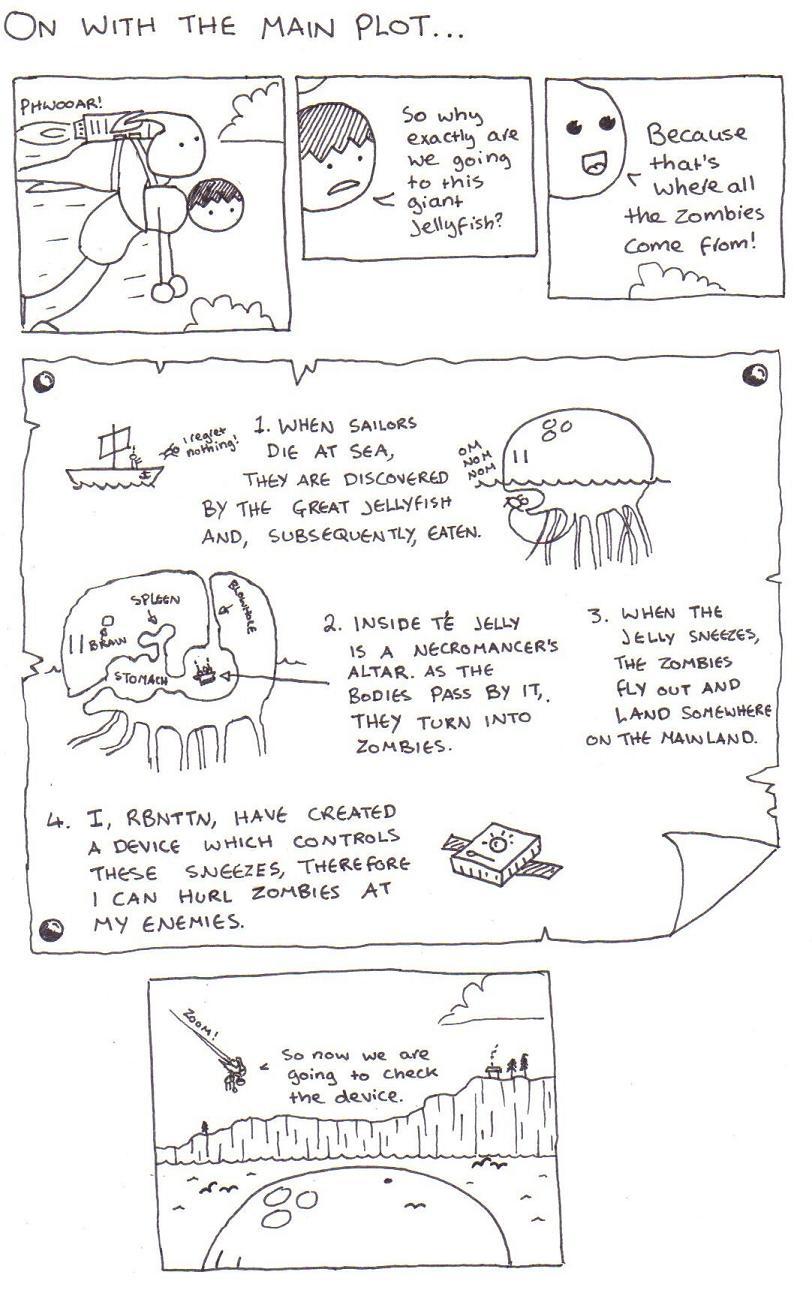 ON WITH THE MAIN PLOT...
PHWOOAR!
So why
exactly are
we going
to this
giant
Jellyfish?
Because
that's
where all
the zombies
come from!
I regret
nothing!
1. WHEN SAILORS
DIE AT SEA,
THEY ARE DISCOVERED
BY THE GREAT JELLYFISH
AND, SUBSEQUENTLY, EATEN.
OM
NOM
NOM
SPLEEN
BRAIN
BLOWHOLE
STOMACH
2. INSIDE TÉ JELLY
IS A NECROMANCER'S
ALTAR. AS THE
BODIES PASS BY IT,
THEY TURN INTO
ZOMBIES.
3. WHEN THE
JELLY SNEEZES,
THE ZOMBIES
FLY OUT AND
LAND SOMEWHERE
ON THE MAINLAND.
4. I, RBNTTN, HAVE CREATED
A DEVICE WHICH CONTROLS
THESE SNEEZES, THEREFORE
I CAN HURL ZOMBIES AT
MY ENEMIES.
ZOOM!
So now we are
going to check
the device.